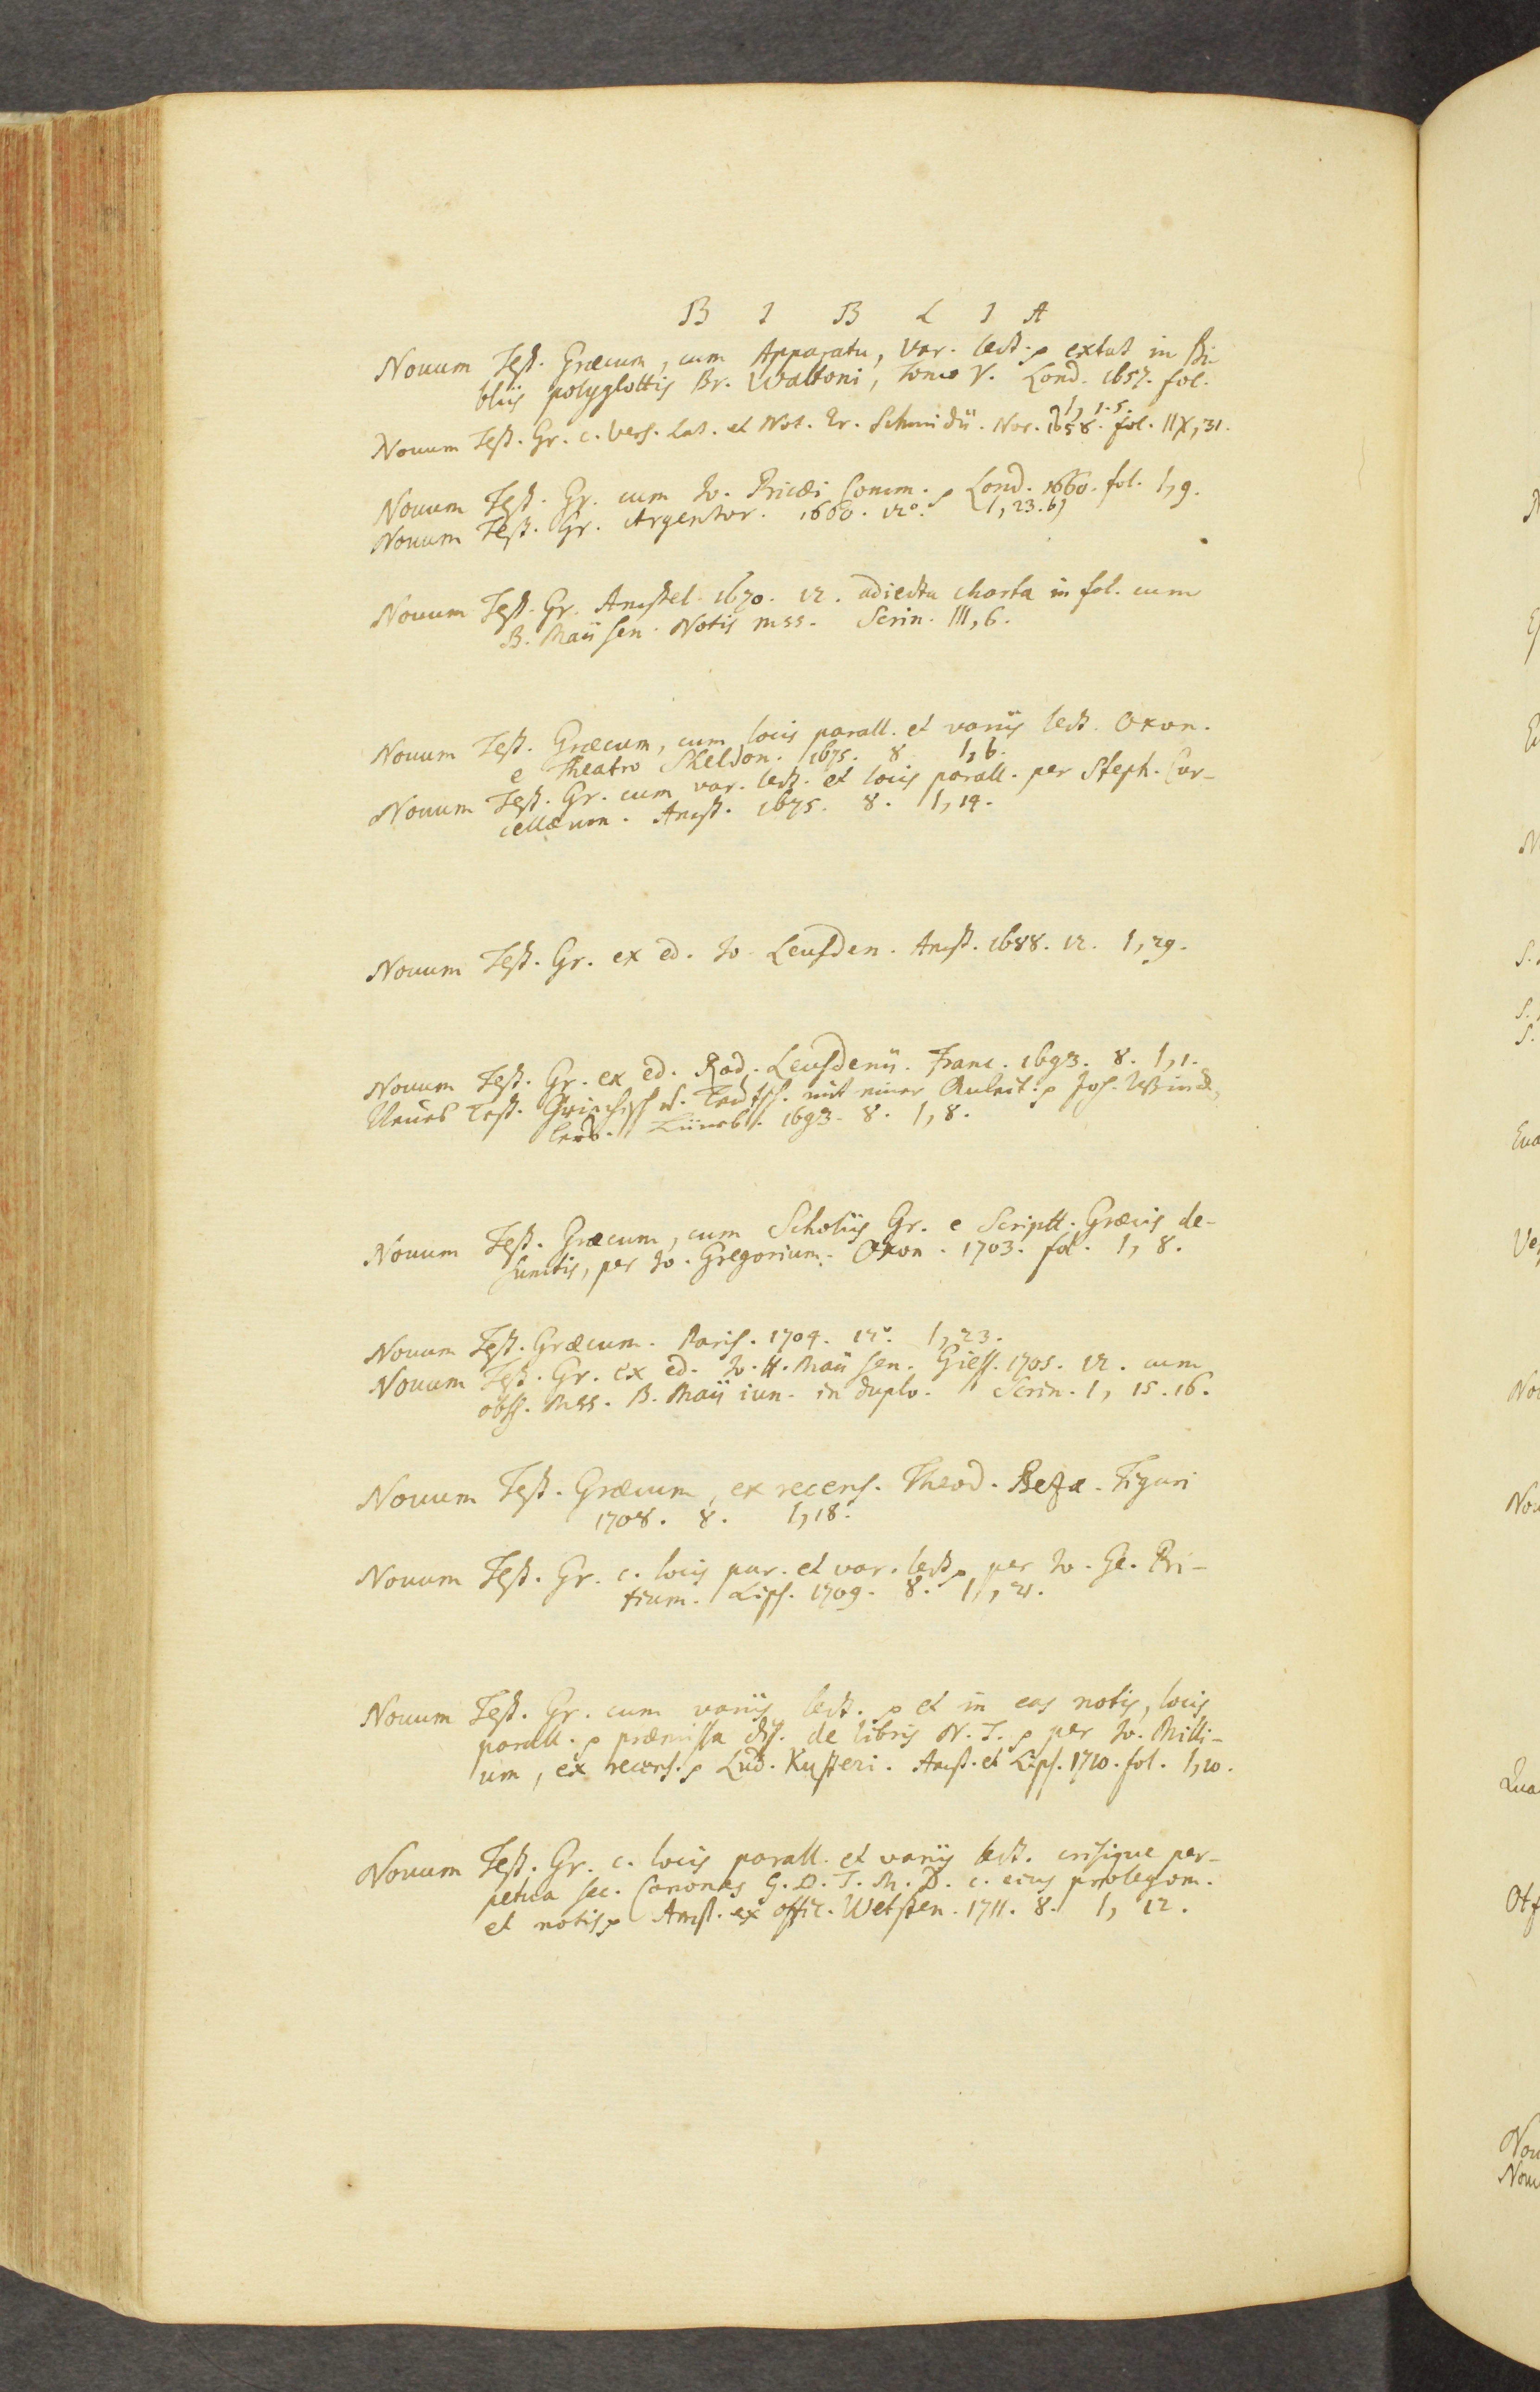 B I B L I A
Nouum Test. Græcum, cum Apparatu, Var. lect. extat in Bi-
bliis polyglottis Br. Waltoni, Tomo V. Lond. 1657. fol.
1, 1-5.
Nouum Test. Gr. c. Vers. Lat. et Not. Er. Schmidii. Nor. 1658. fol. IIX, 31.
Nouum Test. Gr. cum Jo. Pricæi Comm. Lond. 1660. fol. 1, 9.
Nouum Test. Gr. Argentor. 1660. 12°. 1, 23. b)
Nouum Test. Gr. Amstel. 1670. 12. adiecta charta in fol. cum
B. Maii sen. Notis mss. Scrin. III, 6.
Nouum Test. Græcum, cum locis parall. et variis lect. Oxon.
e Theatro Sheldon. 1675. 8. 1, 6.
Nouum Test. Gr. cum var. lect. et locis parall. per Steph. Cur-
cellæum. Amst. 1675. 8. 1, 14.
Nouum Test. Gr. ex ed. Jo. Leusden. Amst. 1688. 12. 1, 29.
Nouum Test. Gr. ex ed. Rod. Leusdenii. Franc. 1693. 8. 1, 1.
Neues Test. Griechisch u. Teutsch. mit einer Anleit. Joh. Winck-
lers. Lüneb. 1693. 8. 1, 8.
Nouum Test. Græcum, cum Scholiis Gr. e Scriptt. Græcis de-
sumtis, per Jo. Gregorium. Oxon. 1703. fol. 1, 8.
Nouum Test. Græcum. Paris. 1704. 12°. 1, 23.
Nouum Test. Gr. ex ed. Jo. H. Maii sen. Giess. 1705. 12. cum
obss. mss. B. Maii iun. in duplo. Scrin. 1, 15. 16.
Nouum Test. Græcum, ex recens. Theod. Beza. Tiguri
1708. 8. 1, 18.
Nouum Test. Gr. c. locis par. et var. lect. per Jo. Ge. Pri-
tium. Lips. 1709. 8. 1, 21.
Nouum Test. Gr. cum variis lect. et in eas notis, locis
parall. præmissa diss. de libris N. T. per Jo. Milli-
um, ex recens. Lud. Kusteri. Amst. et Lips. 1710. fol. 1, 10.
Nouum Test. Gr. c. locis parall. et variis lect. crisique per-
petua sec. Canones G. D. T. M. D. c. eius prolegom.
et notis Amst. ex offic. Wetsten. 1711. 8. 1, 12.